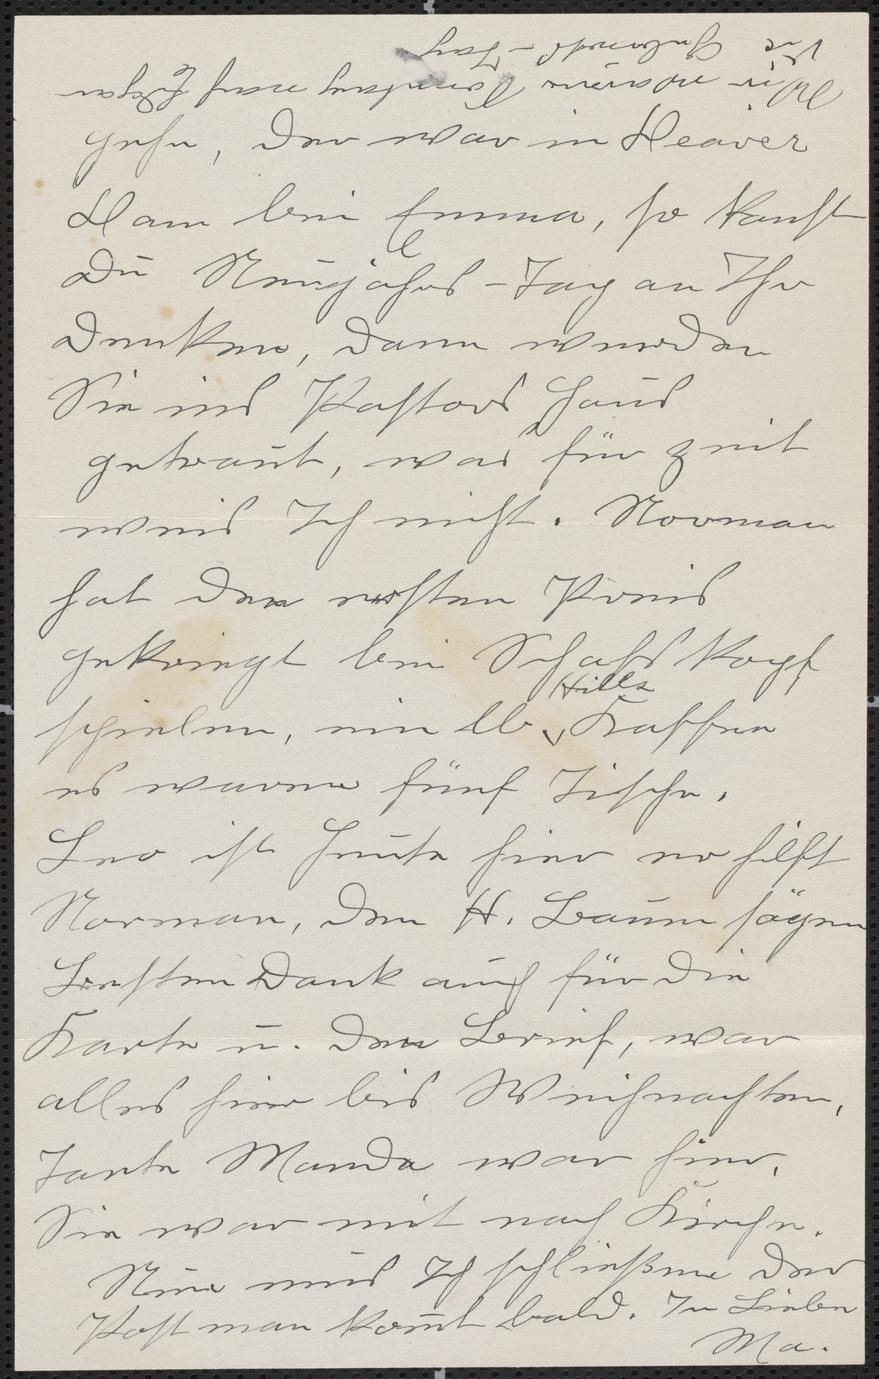 gehn, der war in Beaver
Dam bei Emma, so kanst
Du Neujahrs-Tag an Ihr
Denken, dann wurden
Sie ins Pastors Haus
getraut, was für zeit
weis Ich nicht. Norman
hat den ersten Preis
gekriegt bei Schafskopf
spielen, ein lb. Hills Kaffee
es waren fünf Tische.
Leo ist heute hier er hilft
Norman, den H. Baum sägen
Besten Dank auch für die
Karte u. den Brief, war
alles hier bis Weihnachten,
Tante Manda war hier,
Sie war mit nach Kirche.
Nun mus Ich schließen der
Postman komt bald. In Liebe
Ma.
Wir waren Sonntag nach Edgar
Geburtstag